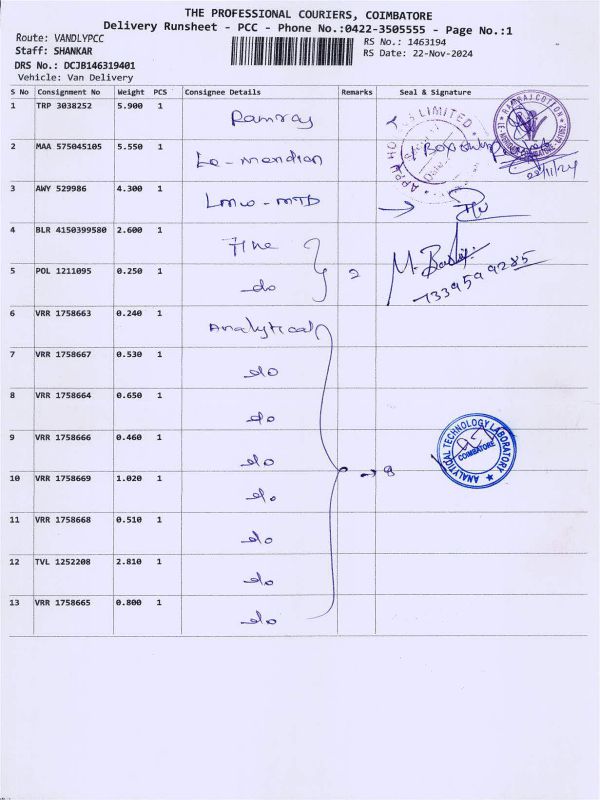 THE PROFESSIONAL COURIERS, COIMBATORE
Delivery Runsheet - PCC - Phone No.:0422-3505555 - Page No.:1
Route: VANDLYPCC
RS No.: 1463194
Staff: SHANKAR
RS Date: 22-Nov-2024
DRS No.: DCJB146319401
Vehicle: Van Delivery
S No Consignment No Weight PCS Consignee Details Remarks Seal & Signature
1 TRP 3038252 5.900 1 Ramraj
2 MAA 575045105 5.550 1 Le-meridian
3 AWY 529986 4.300 1 LMW-MTD
4 BLR 4150399580 2.600 1
5 POL 1211095 0.250 1 do 2
7339599285
6 VRR 1758663 0.240 1 Analytical
7 VRR 1758667 0.530 1 do
8 VRR 1758664 0.650 1 do
9 VRR 1758666 0.460 1 do
ANALYTICAL TECHNOLOGY LABORATORY
COIMBATORE
10 VRR 1758669 1.020 1 do → 8
11 VRR 1758668 0.510 1 do
12 TVL 1252208 2.810 1 do
13 VRR 1758665 0.800 1 do